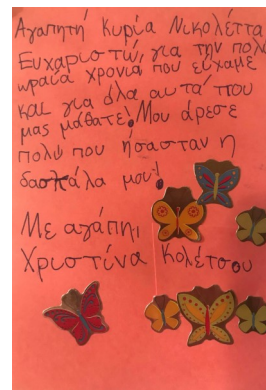 Αγαπητή Κυρία Νικολέττα
Ευχαριστώ, για την πολύ
ωραία χρονιά που είχαμε
και για όλα αυτά που
μας μάθατε! Μου άρεσε
πολύ που ήσασταν η
δασκάλα μου!
Με αγάπη,
Χριστίνα Κολέτσου